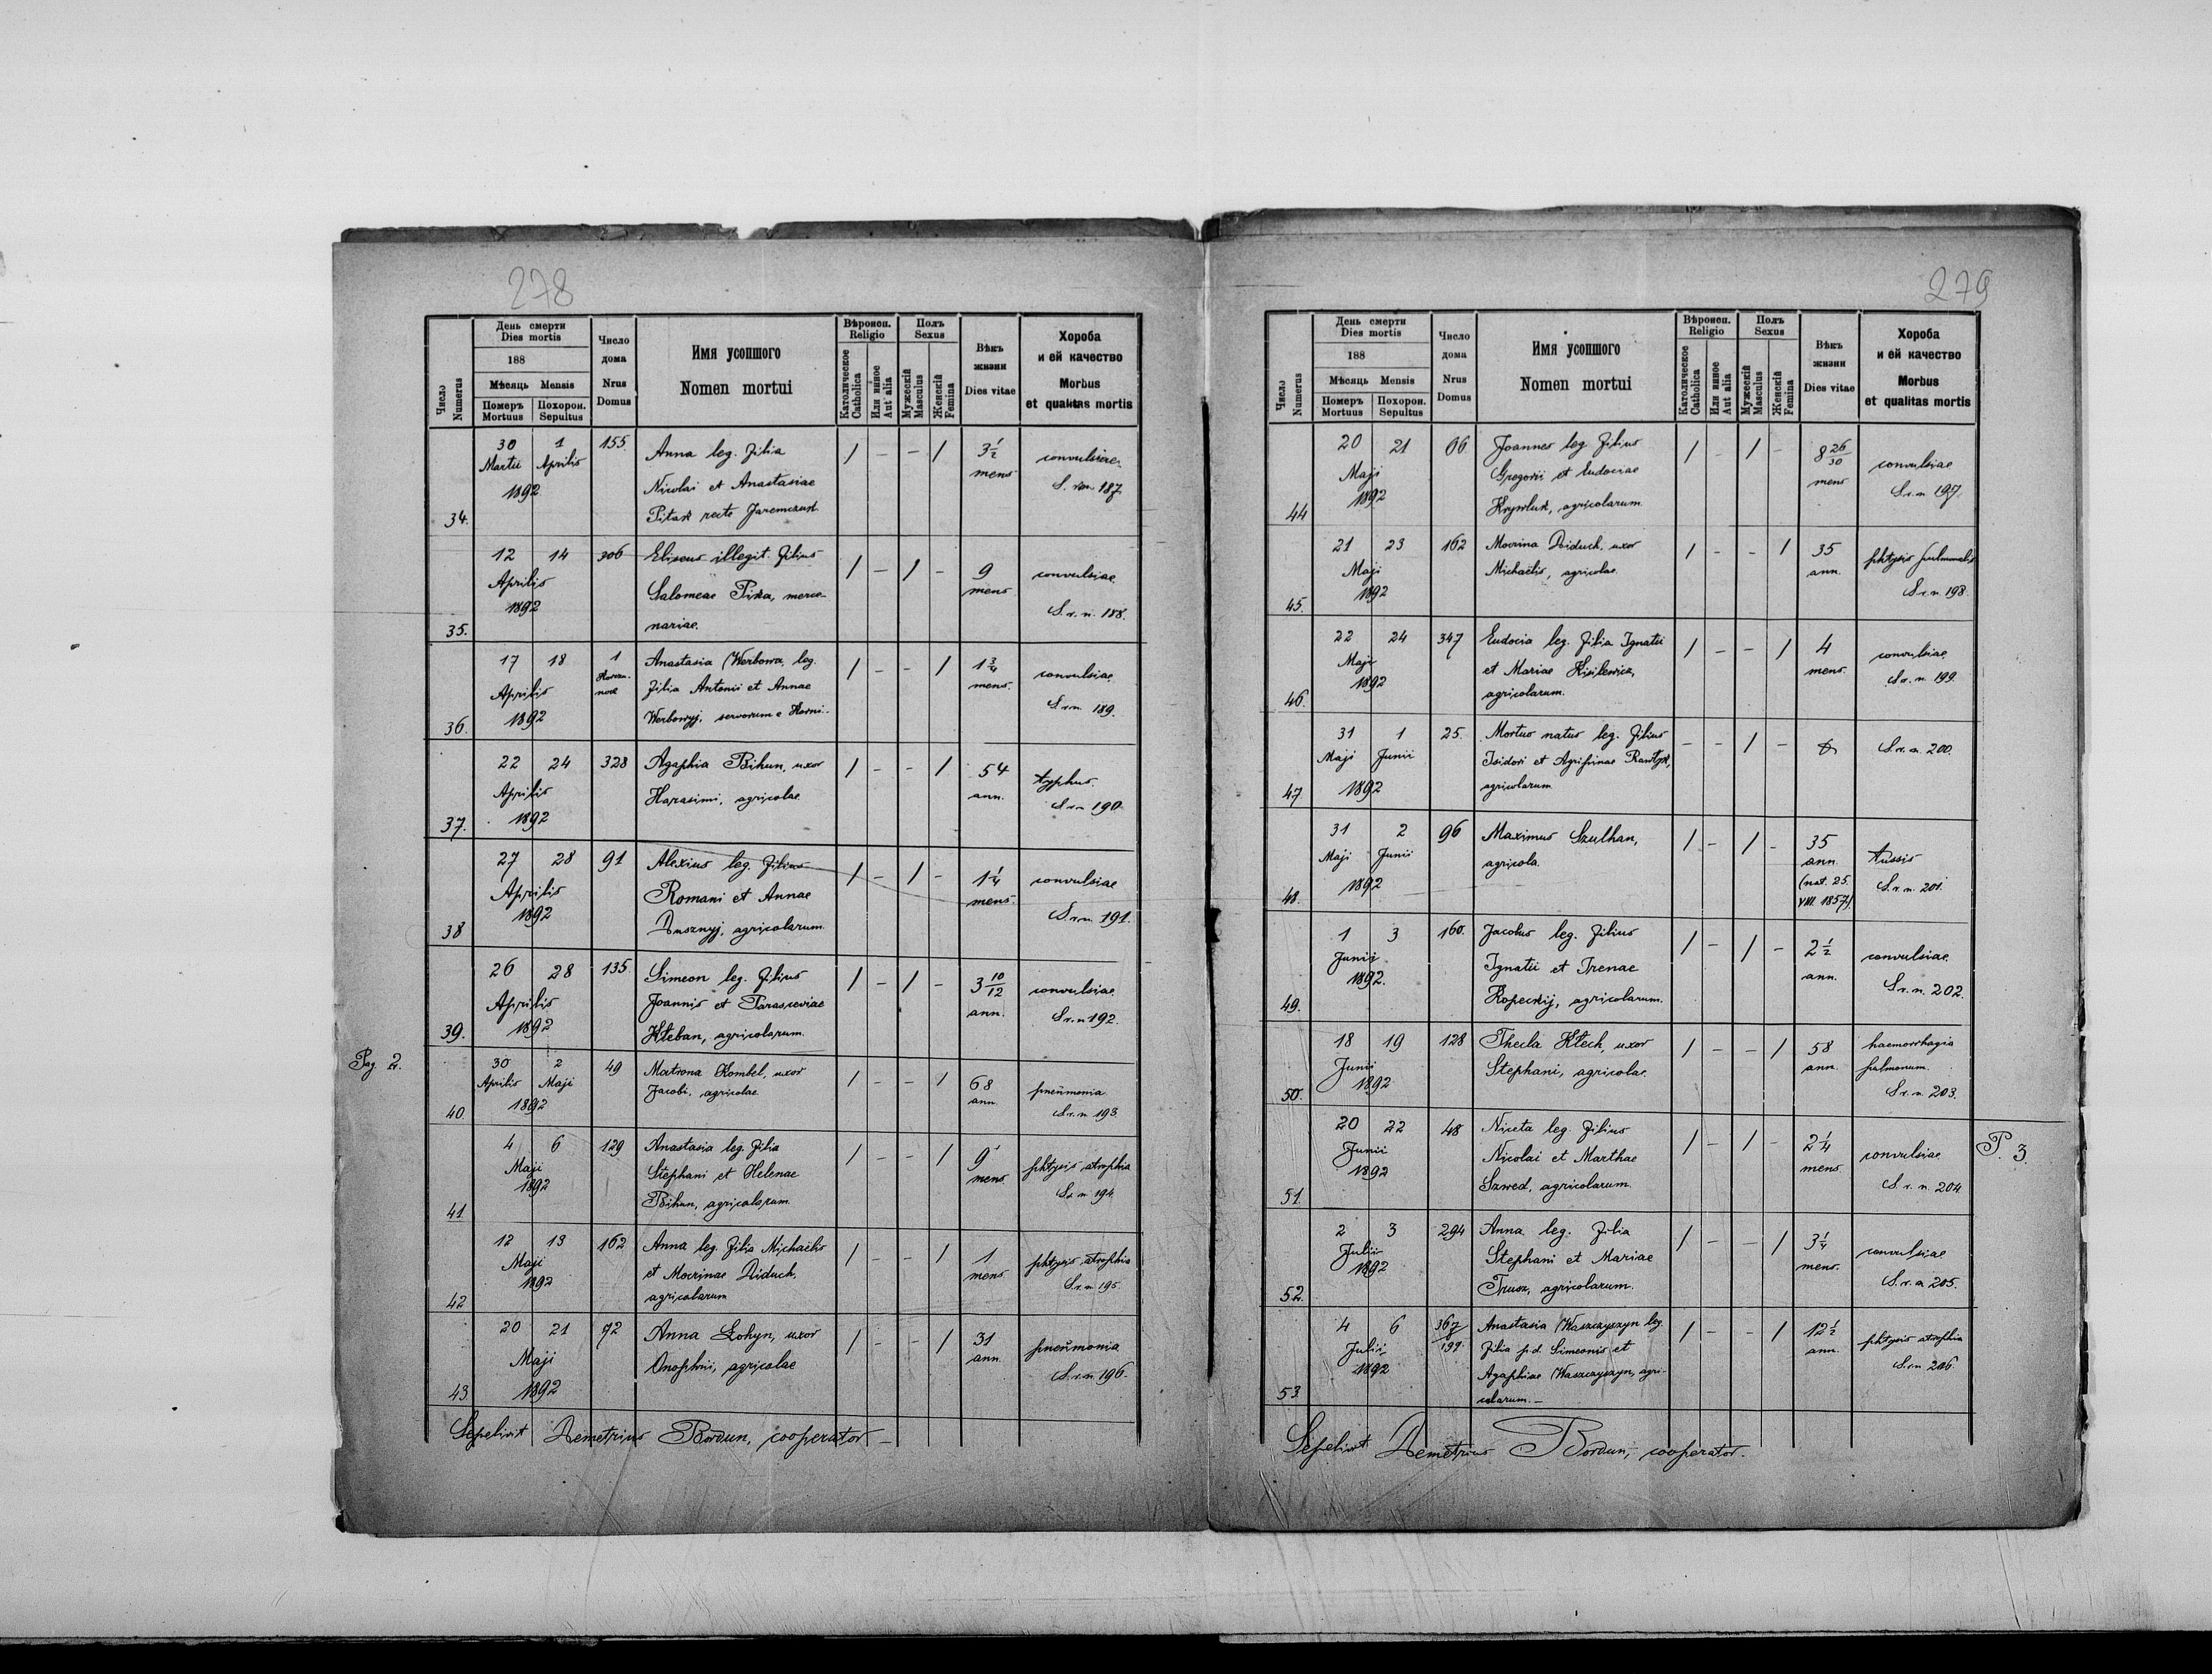 278
Число
Numerus
День смерти
Dies mortis
188
Мѣсяць Mensis
Померъ Mortuus
Похорон. Sepultus
Число дома
Nrus Domus
Имя усопшого
Nomen mortui
Вѣроисп.
Religio
Католическое Catholica
Или инное Aut alia
Полъ
Sexus
Мужескій Masculus
Женскій Femina
Вѣкъ жизни
Dies vitae
Хороба
и ей качество
Morbus
et qualitas mortis
34. 30 Martii 1 Aprilis 1892 155.
Anna leg. filia
Nicolai et Anastasiae
Pitak recte Jaremczuk
/ - - / 3 1/2 mens
convulsiae
S. r. n. 187
35. 12 14 Aprilis 1892 306
Eliseus illegit. filius
Salomeae Pika, merce-
nariae.
/ - / - 9 mens
convulsiae
S. r. n. 188.
36. 17 18 Aprilis 1892 1
Anastasia Werbowa, leg.
filia Antonii et Annae
Werbowyj, servorum e
/ - - / 1 3/4 mens.
convulsiae
S. r. n. 189.
37. 22 24 Aprilis 1892 328
Agaphia Bihun, uxor
Harasimi, agricolae
/ - - / 54 ann.
typhus.
S. r. n. 190
38 27 28 Aprilis 1892 91
Alexius leg. filius
Romani et Annae
Dusznyj, agricolarum.
/ - / - 1 1/4 mens.
convulsiae
S. r. n. 191.
39. 26 28 Aprilis 1892 135.
Simeon leg. filius
Joannis et Parasceviae
Kłeban, agricolarum.
/ - / - 3 10/12 ann.
convulsiae
S. r. n. 192.
Pag 2.
40. 30 Aprilis 2 Maji 1892 49
Matrona Kombel, uxor
Jacobi, agricolae
/ - - / 68 ann.
pneumonia
S. r. n. 193
41 4 6 Maji 1892 129
Anastasia leg. filia
Stephani et Helenae
Bihun, agricolarum.
/ - - / 9 mens
phtysis atrophia
S. r. n. 194.
42 12 13 Maji 1892 162
Anna leg. filia Michaëlis
et Mocrinae Diduch,
agricolarum
/ - - / 1 mens
phtysis atrophia
S. r. n. 195.
43 20 21 Maji 1892 72
Anna Łohyn, uxor
Onophrii, agricolae
/ - - / 31 ann
pneumonia
S. r. n. 196.
Sepelivit Demetrius Bordun, cooperator
279
Число
Numerus
День смерти
Dies mortis
188
Мѣсяць Mensis
Померъ Mortuus
Похорон. Sepultus
Число дома
Nrus Domus
Имя усопшого
Nomen mortui
Вѣроисп.
Religio
Католическое Catholica
Или инное Aut alia
Полъ
Sexus
Мужескій Masculus
Женскій Femina
Вѣкъ жизни
Dies vitae
Хороба
и ей качество
Morbus
et qualitas mortis
44 20 21 Maji 1892 66
Joannes leg. filius
Gregorii et Eudociae
Krywluk, agricolarum
/ - / - 8 26/30 mens
convulsiae
S. r. n. 197.
45. 21 23 Maji 1892 162
Mocrina Diduch, uxor
Michaëlis, agricolae.
/ - - / 35 ann.
phtysis pulmonalis
S. r. n. 198.
46. 22 24 Maji 1892 347
Eudocia leg. filia Ignatii
et Mariae Kisilewicz,
agricolarum.
/ - - / 4 mens.
convulsiae
S. r. n. 199.
47 31 Maji 1 Junii 1892 25.
Mortuo natus leg. filius
Isidori et Agripinae
agricolarum
- - / -
S. r. n. 200.
48. 31 Maji 2 Junii 1892 96
Maximus Szulhan,
agricola.
/ - / - 35 ann.
(nat. 25.
VIII. 1857).
tussis
S. r. n. 201.
49. 1 3 Junii 1892. 160.
Jacobus leg. filius
Ignatii et Irenae
Kopeckij, agricolarum.
/ - / - 2 1/2 ann.
convulsiae
S. r. n. 202.
50. 18 19 Junii 1892 128
Thecla Kłech, uxor
Stephani, agricolae.
/ - - / 58 ann.
haemorrhagia
pulmonum.
S. r. n. 203.
51. 20 22 Junii 1892 48
Niceta leg. filius
Nicolai et Marthae
Szwed, agricolarum.
/ - / - 2 1/4 mens
convulsiae
S. r. n. 204
P. 3.
52. 2 3 Julii 1892 294
Anna leg. filia
Stephani et Mariae
Trusz, agricolarum.
/ - - / 3 1/4 mens.
convulsiae
S. r. n. 205.
53. 4 6 Julii 1892 367/199.
Anastasia Waszczyszyn leg.
filia p.d. Simeonis et
Agaphiae Waszczyszyn, agri-
colarum.
/ - - / 12 1/2 ann.
phtysis atrophia
S. r. n. 206.
Sepelivit Demetrius Bordun, cooperator.